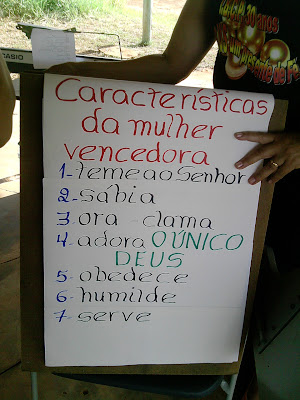 CASIO
Características
da mulher
vencedora
1- teme ao Senhor
2- sábia
3- ora - clama
4- adora O ÚNICO
DEUS
5- obedece
6- humilde
7- serve